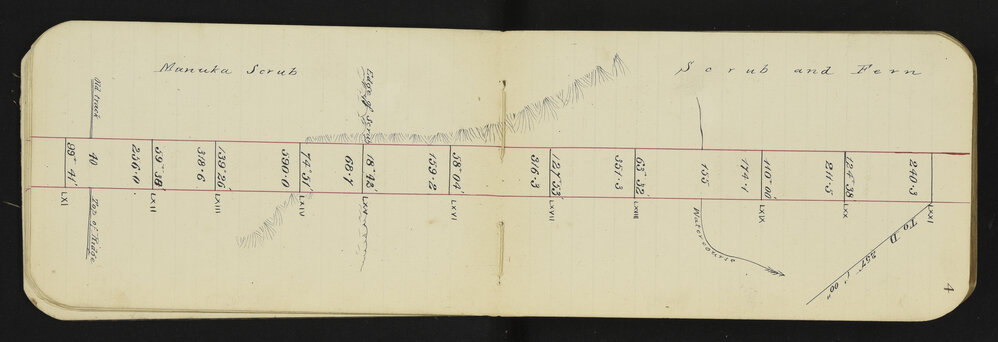 Manuka Scrub
Scrub and Fern
Old track
Edge of Scrub
89° 41'
40
256.0
59° 38'
318.6
139° 26'
590.0
74° 51'
68.7
18° 42'
159.2
58° 04'
816.3
127° 53'
351.3
65° 32'
155
174.1
110° 00'
211.5
124° 38'
240.3
LXI
Top of Ridge
LXII
LXIII
LXIV
LXV
LXVI
LXVII
LXIII
Watercourse
LXIX
LXX
LXXI
To D 257° 1' 00"
4